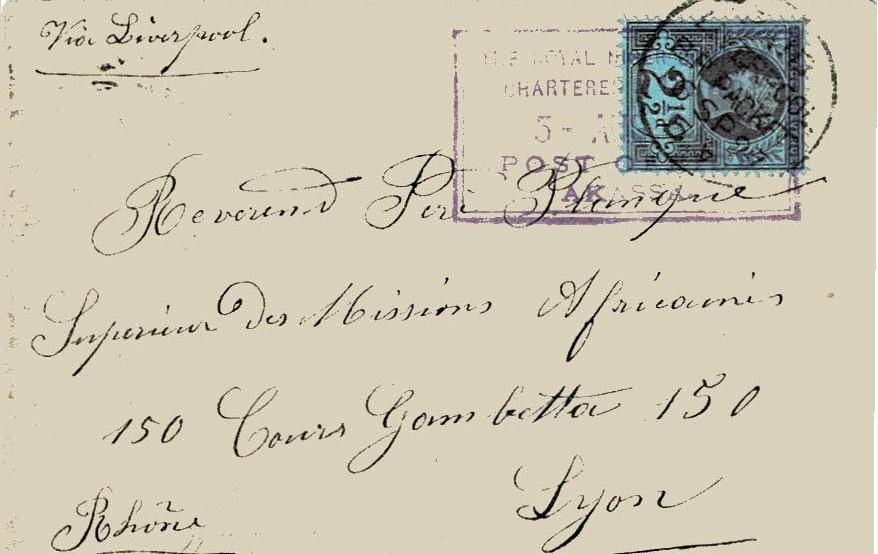 Via Liverpool.
ROYAL
CHARTERED
5-
POST
AKASSA
2½d
LIVERPOOL
PACKET
6 SP 94
Reverend Père Planque
Superieur des Missions Africaines
150 Cours Gambetta 150
Lyon
Rhône